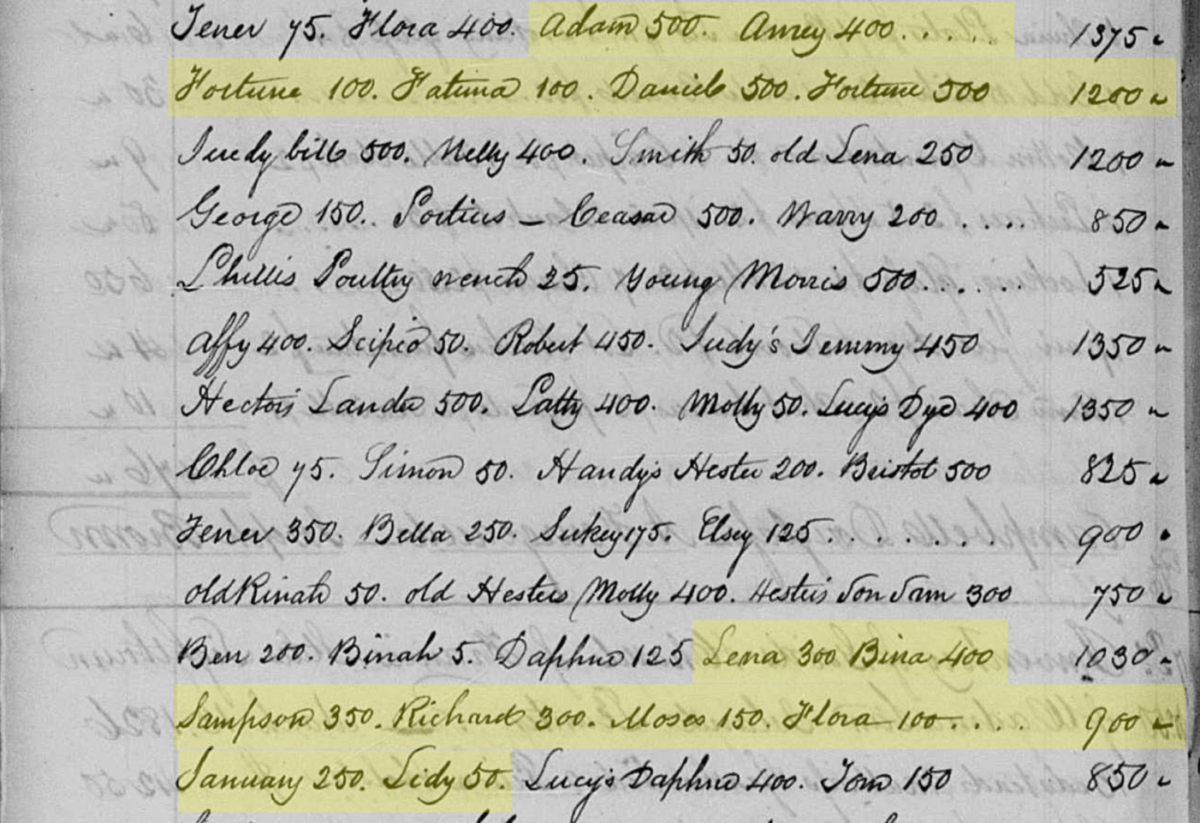 Jener 75. Flora 400. Adam 500. Amey 400..... 1375"
Fortune 100. Fatima 100. Daniel 500. Fortune 500 1200"
Judy bill 500. Nelly 400. Smith 50. old Lena 250 1200"
George 150.. Portius — Ceasar 500. Warry 200 .... 850"
Phillis Poultry wench 25. Young Morris 500...... 525"
Affy 400. Scipio 50. Robert 450. Judy's Jemmy 450 1350"
Hector's Lander 500. Patty 400. Molly 50. Lucy's Dye 400 1350"
Chloe 75. Simon 50. Handy's Hester 200. Bristol 500 825"
Jener 350. Bella 250. Sukey 175. Elsey 125....... 900"
old Rinah 50. old Hesters Molly 400. Hester's Son Sam 300 750"
Ben 200. Binah 5. Daphne 125 Lena 300 Bina 400 1030"
Sampson 350. Richard 300. Moses 150. Flora 100.... 900"
January 250. Lidy 50. Lucy's Daphne 400. Tom 150 850"